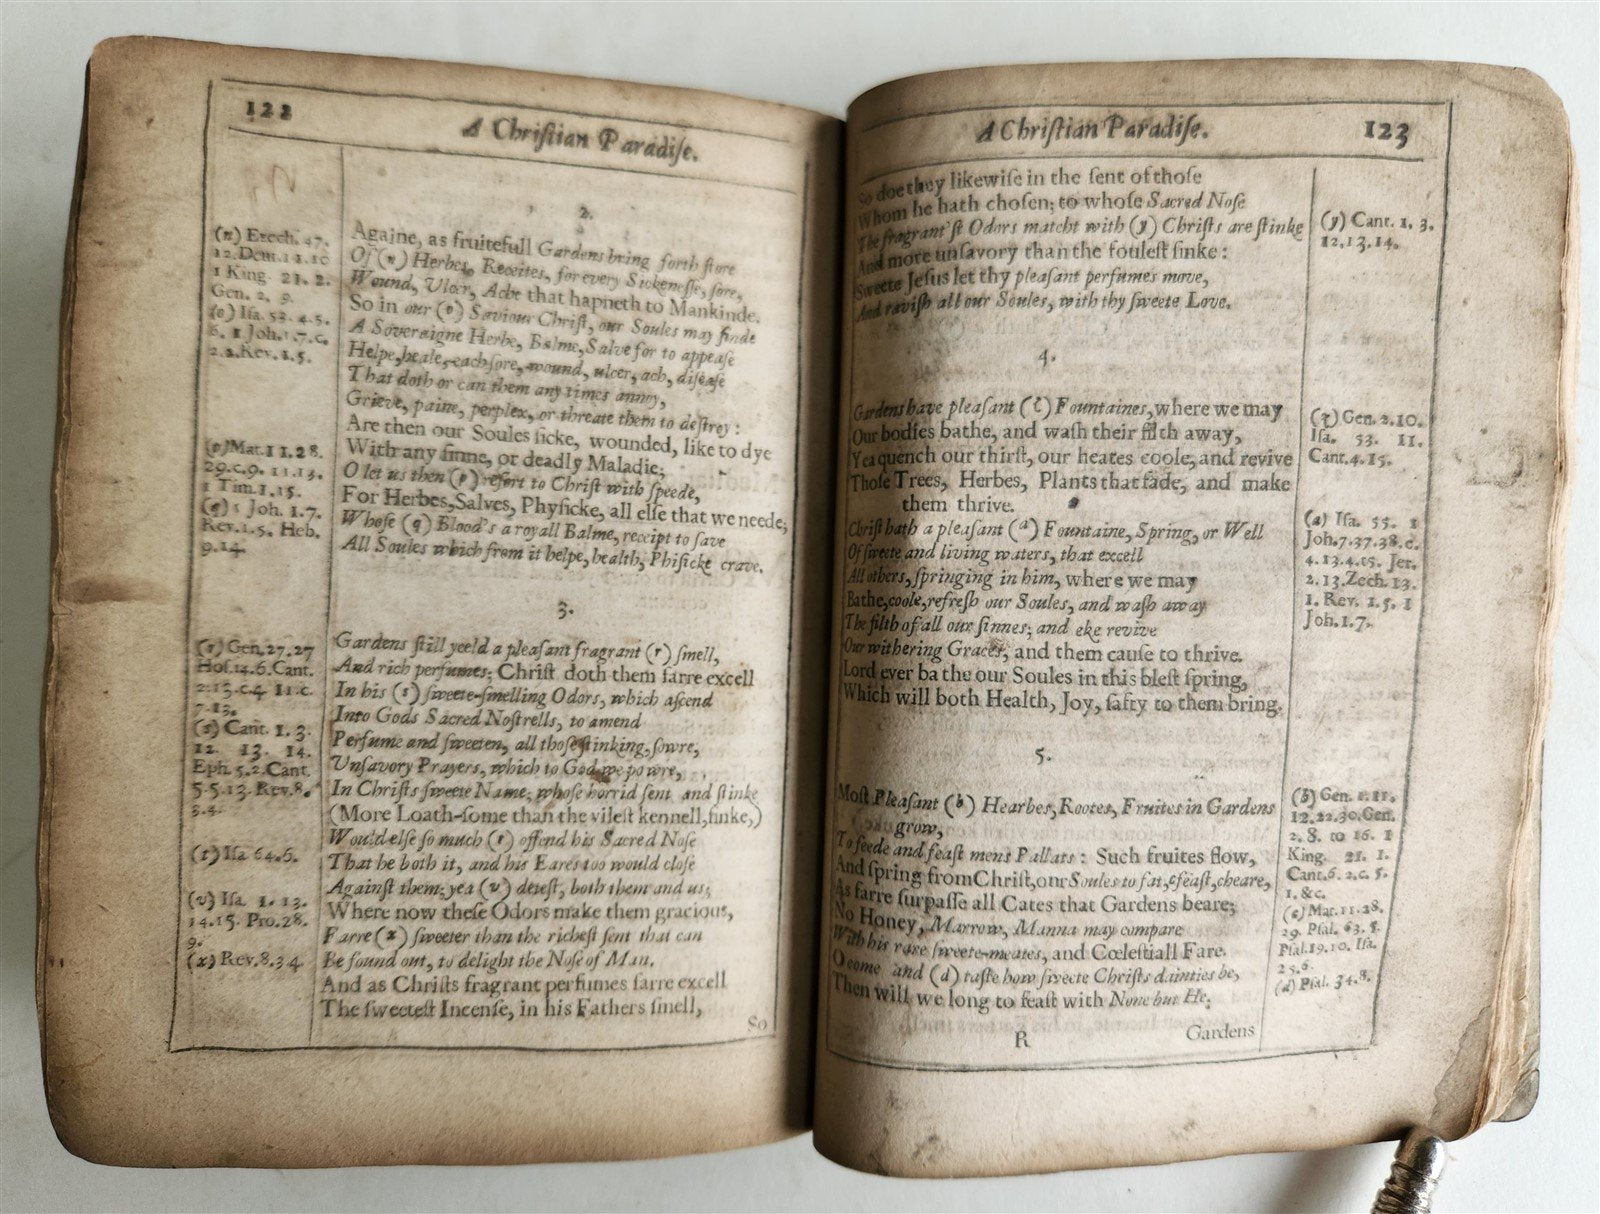 122
A Chriſtian Paradiſe.
2.
Againe, as fruitefull Gardens bring forth ſtore
Of (n) Herbes, Receites, for every Sickeneſſe, ſore,
Wound, Ulcer, Ache that hapneth to Mankinde.
So in our (o) Saviour Chriſt, our Soules may finde
A Soveraigne Herbe, Balme, Salve for to appeaſe
Helpe, heale, each ſore, wound, ulcer, ach, diſeaſe
That doth or can them any times annoy,
Grieve, paine, perplex, or threate them to deſtroy:
Are then our Soules ſicke, wounded, like to dye
With any ſinne, or deadly Maladie;
O let us then (p) reſort to Chriſt with ſpeede,
For Herbes, Salves, Phyſicke, all elſe that we neede;
Whoſe (q) Blood's a royall Balme, receipt to ſave
All Soules which from it helpe, health, Phiſicke crave.
(n) Ezech. 47.
12.
1 King. 21. 2.
Gen. 2. 9.
(o) Iſa. 53. 4.5.
6. 1 Joh. 1.7. c.
2.2. Rev. 1.5.
(p) Mat. 11.28.
29. c. 9. 11.13.
1 Tim. 1.15.
(q) 1 Joh. 1.7.
Rev. 1.5. Heb.
9.14.
3.
Gardens ſtill yeeld a pleaſant fragrant (r) ſmell,
And rich perfumes; Chriſt doth them farre excell
In his (s) ſweete-ſmelling Odors, which aſcend
Into Gods Sacred Noſtrells, to amend
Perfume and ſweeten, all thoſe ſtinking, ſowre,
Unſavory Prayers, which to God we powre,
In Chriſts ſweete Name; whoſe horrid ſent and ſtinke
(More Loath-ſome than the vileſt kennell, ſinke,)
Would elſe ſo much (t) offend his Sacred Noſe
That he both it, and his Eares too would cloſe
Againſt them; yea (v) deteſt, both them and us;
Where now theſe Odors make them gracious,
Farre (x) ſweeter than the richeſt ſent that can
Be found out, to delight the Noſe of Man.
And as Chriſts fragrant perfumes farre excell
The ſweeteſt Incenſe, in his Fathers ſmell,
So
(r) Gen. 27.27
Hoſ. 14.6. Cant.
2.13. c.4 11. c.
7.13.
(s) Cant. 1. 3.
12. 13. 14.
Eph. 5.2. Cant.
5.5.13. Rev. 8.
3.4.
(t) Iſa 64.6.
(v) Iſa. 1. 13.
14.15. Pro. 28.
9.
(x) Rev. 8.3 4
A Chriſtian Paradiſe.
123
So doe they likewiſe in the ſent of thoſe
Whom he hath choſen; to whoſe Sacred Noſe
The fragrant'ſt Odors matcht with (y) Chriſts are ſtinke
And more unſavory than the fouleſt ſinke:
Sweete Jeſus let thy pleaſant perfumes move,
And raviſh all our Soules, with thy ſweete Love.
(y) Cant. 1. 3.
12.13.14.
4.
Gardens have pleaſant (z) Fountaines, where we may
Our bodies bathe, and waſh their filth away,
Yea quench our thirſt, our heates coole, and revive
Thoſe Trees, Herbes, Plants that fade, and make
them thrive.
Chriſt hath a pleaſant (a) Fountaine, Spring, or Well
Of ſweete and living waters, that excell
All others, ſpringing in him, where we may
Bathe, coole, refreſh our Soules, and waſh away
The filth of all our ſinnes; and eke revive
Our withering Graces, and them cauſe to thrive.
Lord ever bathe our Soules in this bleſt ſpring,
Which will both Health, Joy, ſafty to them bring.
(z) Gen. 2.10.
Iſa. 53. 11.
Cant. 4.15.
(a) Iſa. 55. 1
Joh. 7.37.38. c.
4.13.4.15. Jer.
2.13. Zech. 13.
1. Rev. 1.5. 1
Joh. 1.7.
5.
Moſt Pleaſant (b) Hearbes, Rootes, Fruites in Gardens
grow,
To feede and feaſt mens Pallats: Such fruites flow,
And ſpring from Chriſt, our Soules to fat, feaſt, cheare,
As farre ſurpaſſe all Cates that Gardens beare;
No Honey, Marrow, Manna may compare
With his rare ſweete-meates, and Cœleſtiall Fare.
O come and (d) taſte how ſweete Chriſts dainties be,
Then will we long to feaſt with None but He;
R
Gardens
(b) Gen. 1.11.
12.22.30. Gen.
2. 8. to 16. 1
King. 21. 1.
Cant. 6. 2. c. 5.
1. &c.
(c) Mat. 11.28.
29. Pſal. 63. 5.
Pſal. 19.10. Iſa.
25.6.
(d) Pſal. 34.8.